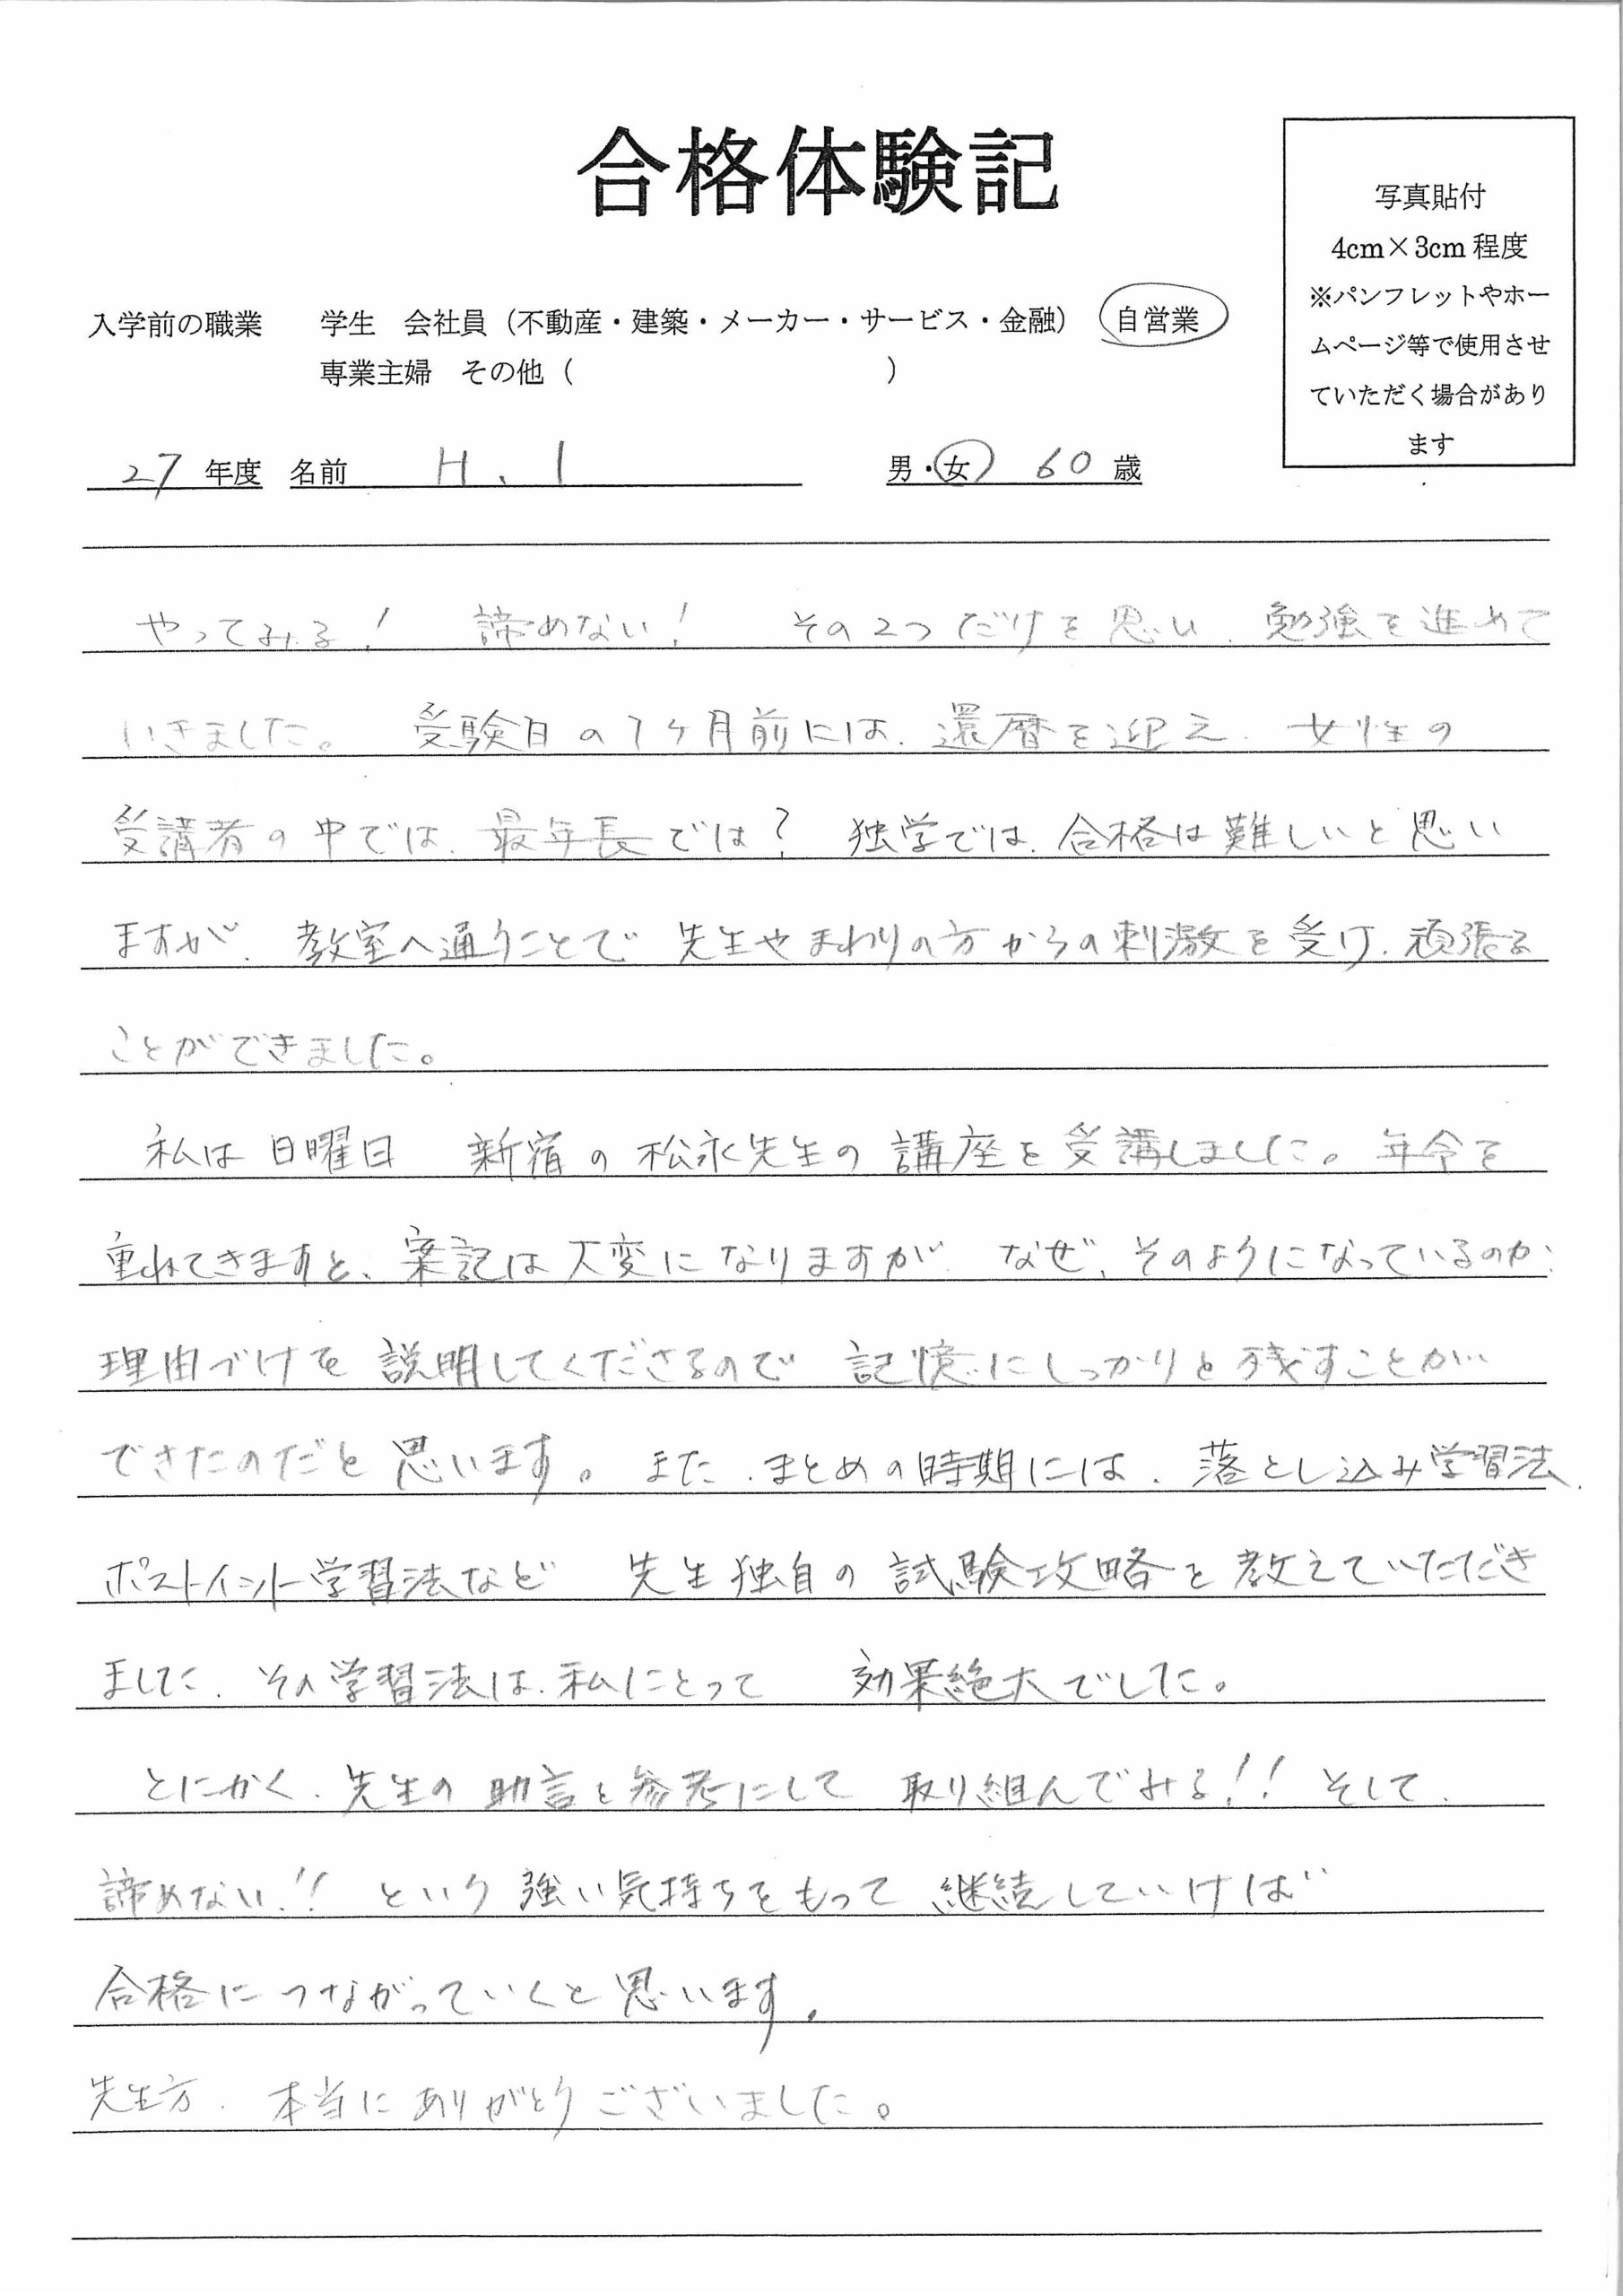 合格体験記
写真貼付
4cm×3cm 程度
※パンフレットやホー
ムページ等で使用させ
ていただく場合があり
ます
入学前の職業 学生 会社員（不動産・建築・メーカー・サービス・金融） 自営業
専業主婦 その他（ ）
27 年度 名前 H、I 男・女 60 歳
やってみる！ 諦めない！ その2つだけを思い、勉強を進めて
いきました。 受験日の1ヶ月前には、還暦を迎え、女性の
受講者の中では、最年長では？ 独学では、合格は難しいと思い
ますが、教室へ通うことで 先生やまわりの方からの刺激を受け、頑張る
ことができました。
私は 日曜日 新宿の 松永先生の 講座を受講しました。年令を
重ねてきますと、案記は大変になりますが、なぜ、そのようになっているのか、
理由づけを 説明してくださるので 記憶にしっかりと残すことが
できたのだと思います。また、まとめの時期には、落とし込み学習法、
ポストイット学習法など 先生独自の試験攻略を教えていただき
ました、その学習法は、私にとって 効果絶大でした。
とにかく、先生の助言を参考にして 取り組んでみる！！ そして、
諦めない！！ という強い気持ちをもって 継続していけば
合格につながっていくと思います。
先生方、本当にありがとうございました。